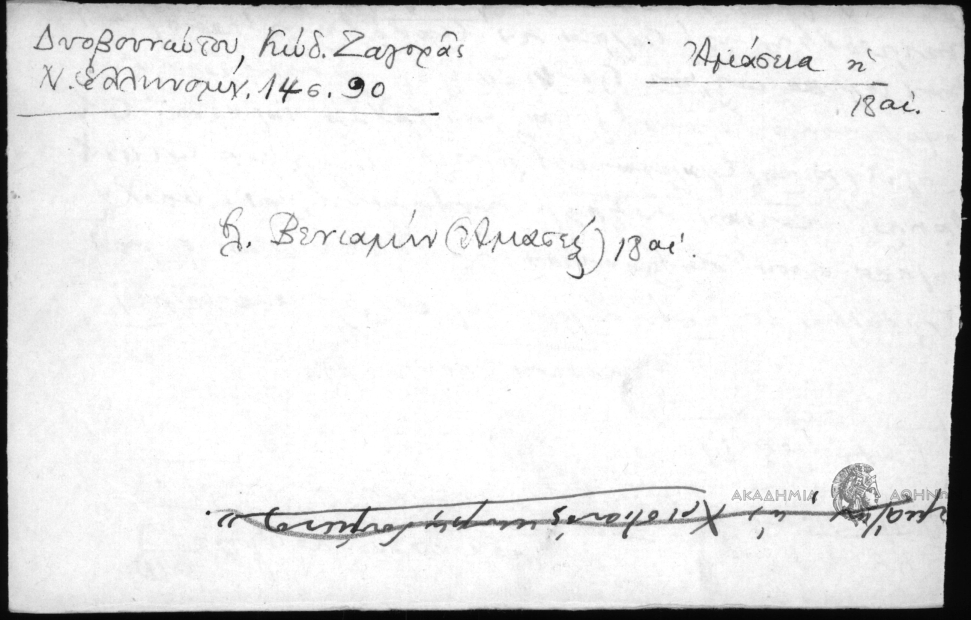 Δυοβουνιώτου, Κώδ. Ζαγορᾶς
Ν. Ἑλληνομν. 14 σ. 90
Ἀμάσεια ἡ
18 αἰ.
Βενιαμίν (Ἀμασεὺς) 18 αἰ.
ΑΚΑΔΗΜΙΑ ΑΘΗΝΩΝ